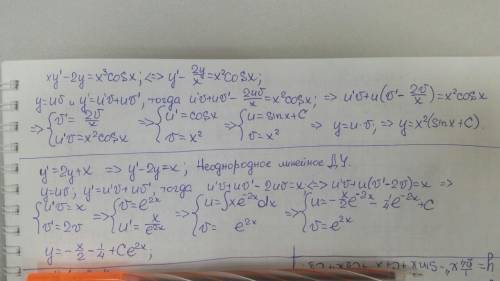 xy'-2y=x³cosx; <=> y'- 2y/x =x²cosx;
y=uv, y'=u'v+uv', тогда u'v+uv'- 2uv/x =x²cosx; => u'v+u(v'- 2v/x)=x²cosx
=> { v'= 2v/x ; u'v=x²cosx => { u'=cosx ; v=x² => { u=sinx+C ; v=x² => y=u·v, => y=x²(sinx+C).
y'=2y+x => y'-2y=x; Неоднородное линейное Д.У.
y=uv, y'=u'v+uv', тогда u'v+uv'-2uv=x <=> u'v+u(v'-2v)=x =>
{ u'v=x ; v'=2v => { v=e^{2x} ; u'= x/e^{2x} => { u=∫xe^{-2x}dx ; v= e^{2x} => { u=- x/2 e^{-2x} - 1/4 e^{-2x}+C ; v=e^{2x}
y=- x/2 - 1/4 +Ce^{2x};